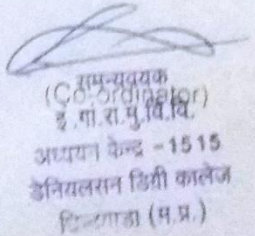 समन्वयक
(Co.ordinator)
इ.गां.रा.मु.वि.वि.
अध्ययन केन्द्र -1515
डेनियलसन डिग्री कालेज
छिन्दवाड़ा (म.प्र.)